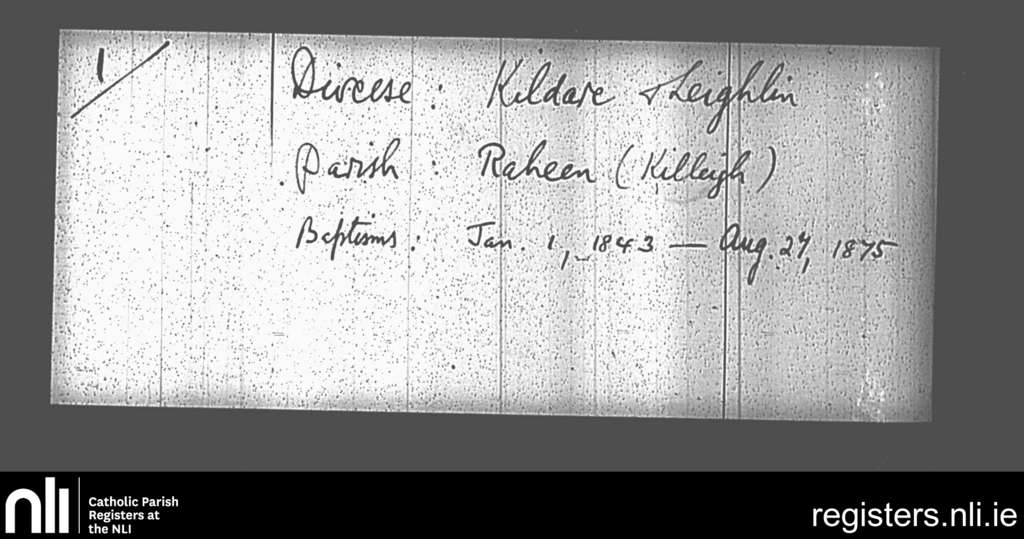 1/
Diocese : Kildare & Leighlin
Parish : Raheen (Killeigh)
Baptisms : Jan. 1, 1843 — Aug. 27, 1875
nli
Catholic Parish
Registers at
the NLI
registers.nli.ie